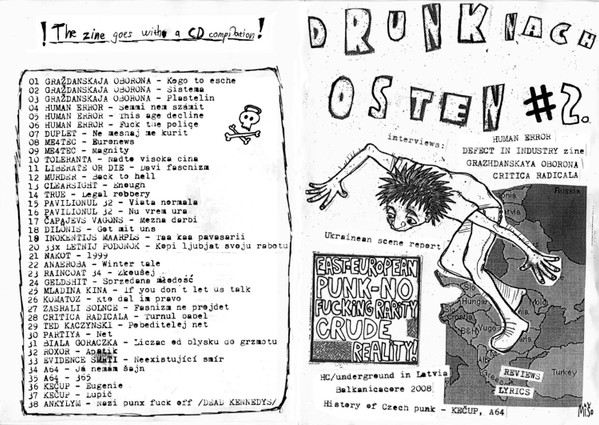 ! The zine goes with a CD compilation !
01 GRAŽDANSKAJA OBORONA - Kogo to esche
02 GRAŽDANSKAJA OBORONA - Sistema
03 GRAŽDANSKAJA OBORONA - Plastelin
04 HUMAN ERROR - Semmi nem számít
05 HUMAN ERROR - This age decline
06 HUMAN ERROR - Fuck the police
07 DUPLET - Ne mešhaj me kurit
08 ME4TEC - Euronews
09 ME4TEC - Magnity
10 TOLERANTA - Nadto visoka cina
11 LIBERATE OR DIE - Davi faschizm
12 MURDER - Back to hell
13 CLEARSIGHT - Enough
14 TRUE - Legal robbery
15 PAVILIONUL 32 - Viata normala
16 PAVILIONUL 32 - Nu vrem ura
17 ČAPAJEVS VAGONS - Mezna darbi
18 DILONIS - Got mit uns
19 INOKENTIJS MAARPLS - Tas kas pavasarii
20 33x LETNIJ PODONOK - Kopi ljubjat svoju rabotu
21 NAKOT - 1999
22 ANAEROBA - Winter tale
23 RAINCOAT 34 - Zkoušej
24 GELDSHIT - Sprzedana młodość
25 MLADINA KINA - If you don't let us talk
26 KOMATOZ - kto dal im pravo
27 ZASRALI SOLNCE - Fasnizm ne projdet
28 CRITICA RADICALA - Turnul babel
29 TED KACZYNSKI - Pobeditelej net
30 PARTIYA - Net
31 BIAŁA GORACZKA - Liczac od blysku do grzmotu
32 ROXOR - Apatik
33 EVIDENCE SMRTI - Neexistující smír
34 A64 - Já nemám šajn
35 A64 - 365
36 KEČUP - Eugenie
37 KEČUP - Lupič
38 ANKYLYM - Nazi punx fuck off /DEAD KENNEDYS/
DRUNK NACH
OSTEN #2.
interviews:
HUMAN ERROR
DEFECT IN INDUSTRY zine
GRAZHDANSKAYA OBORONA
CRITICA RADICALA
Russia
Latvia
Ukrainean scene report
EAST-EUROPEAN
PUNK-NO
FUCKING RARITY
CRUDE
REALITY!
Slo
Hungary
Mold
B&H
Yugo
Turkey
HC/underground in Latvia
Balkanicacore 2008
History of Czech punk - KEČUP, A64
REVIEWS
LYRICS